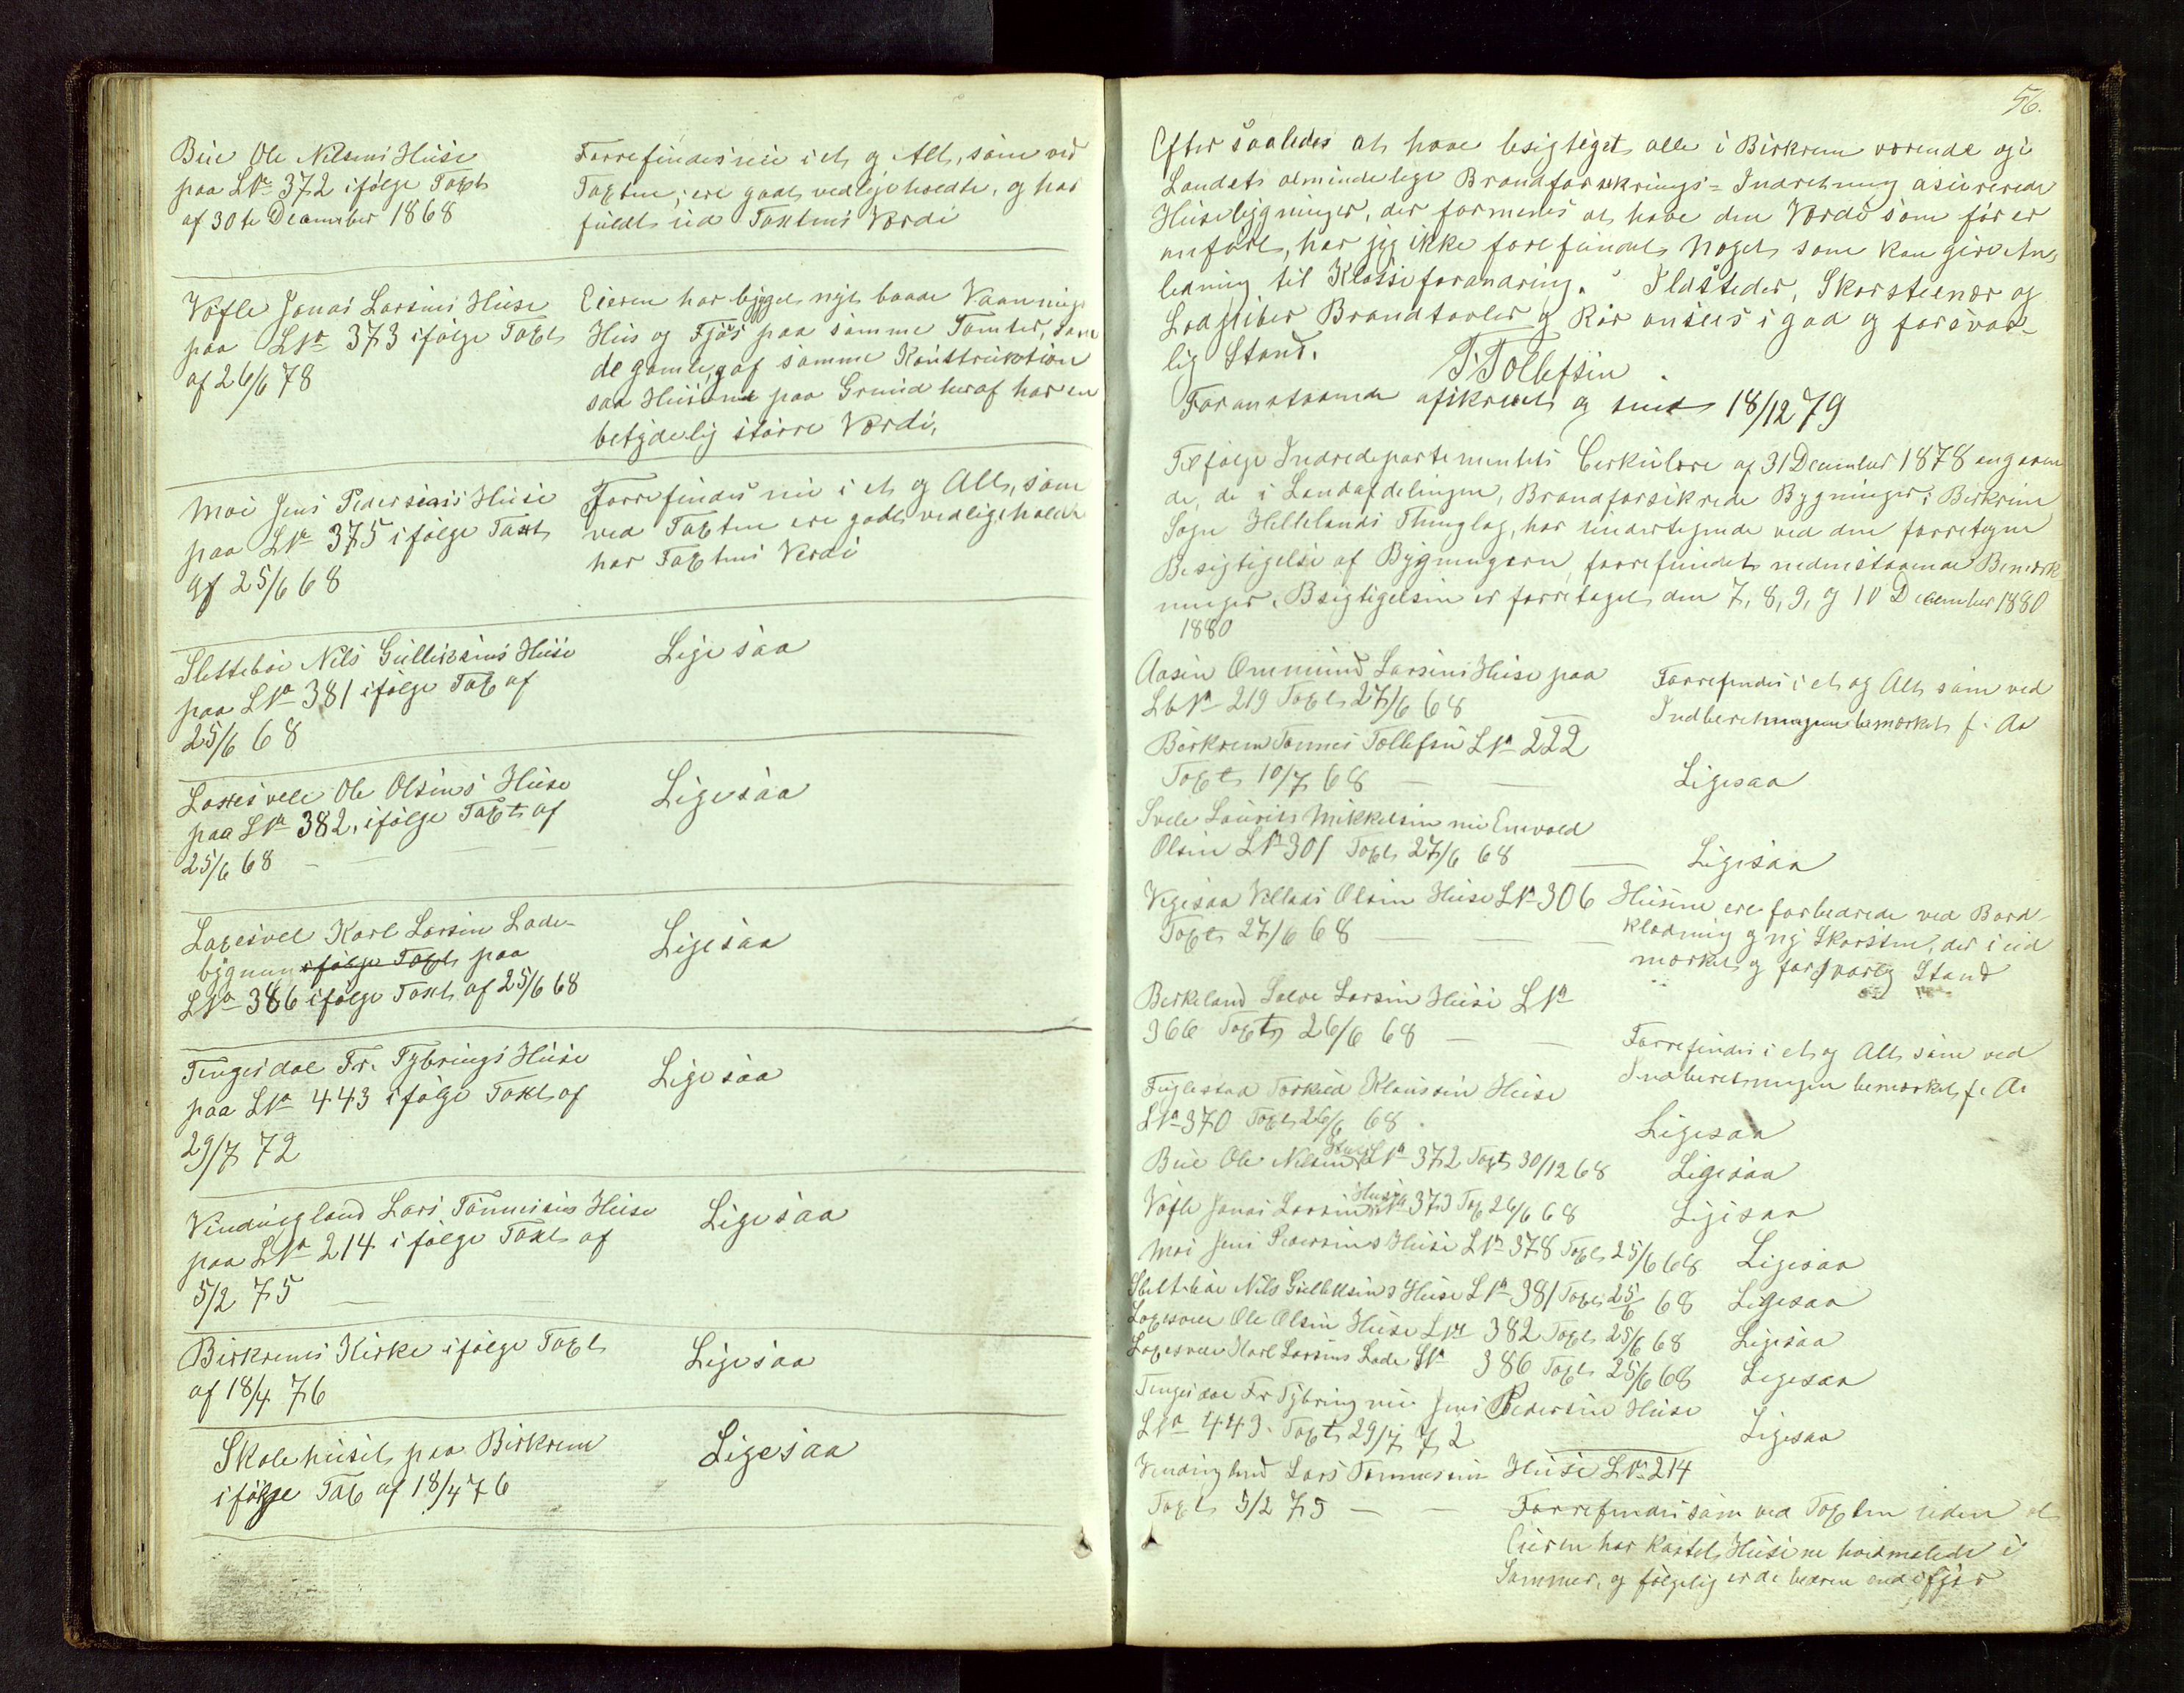 Bue Ole Nilsens Huse
paa LNr 372 ifølge Taxt
af 30te December 1868
Forrefindes nu i et og Alt, som ved
Taxten, ere godt vedligeholdte, og har
fuldt ud Taxtens Værdi
Vofle Jonas Larsens Huse
paa LNr 373 ifølge Taxt
af 26/6 78
Eieren har bygget nyt baade Vaanings
Hus og Fjøs paa samme Tomter, som
de gamle, og af samme Konstruktion
saa Husene paa Grund heraf har en
betydelig større Værdi,
Moi Jens Pedersens Huse
paa LNr 375 ifølge Taxt
af 25/6 68
Forrefindes nu i et og Alt, som
ved Taxten ere godt vedligeholdt
har Taxtens Verdi
Slettebøe Nils Gulliksens Huse
paa LNr 381 ifølge Tax af
25/6 68
Ligesaa
Laxesvele Ole Olsens Huse
paa LNr 382, ifølge Taxt af
25/6 68 — — —
Ligesaa
Laxesvel Karl Larsen Lade-
bygnung ifølge Taxt paa
LNr 386 ifølge Taxt af 25/6 68
Ligesaa
Tengesdal Fr. Tybrings Huse
paa LNr 443 ifølge Taxt af
29/7 72
Ligesaa
Vindingland Lars Tønnesens Huse
paa LNr 214 ifølge Taxt af
5/2 75 —
Ligesaa
Birkrems Kirke ifølge Taxt
af 18/4 76
Ligesaa
Skolehuset paa Birkrem
ifølge Tax af 18/4 76
Ligesaa
56.
Efter saaledes at have besigtiget alle i Birkrem værende og i
Landets almindelige Brandforsikrings-Indretning asurerede
Husebygninger, der formenes at have den Værdi som før er
anført, har jeg ikke forefundet Noget som kan give An-
ledning til Klasseforandring. Ildsteder, Skorstene og
Brandtavler og Rør ansees i god og forsvar-
lig Stand.
T Tollefsen
Foranstaaende afskrevet og sendt 18/12 79
Ifølge Indredepartementets Cerkulære af 31 December 1878 angaaen
de, de i Landafdelingen, Brandforsikrede Bygninger i Birkrem
Sogn Hellelands Thinglag, har undertegnede ved den forretagne
Besigtigelse af Bygningerne, forrefundet nedenstaaende Bemærk
ninger, Besigtigelsen er forretaget den 7, 8, 9, og 10 December 1880
1880
Aasen Ommund Larsens Huse paa
LbNr 219 Taxt 27/6 68
Forrefindes i et og Alt som ved
Indberetningen bemærket f. Aa
Birkrem Tønnes Tollefsen LNr 222
Taxt 10/7 68 — —
Ligesaa
Svele Laurits Mikkelsen nu Enevald
Olsen LNr 301 Taxt 27/6 68 —
Ligesaa
Vegesaa Villads Olsen Huse LNr 306
Taxt 27/6 68 — — —
Husene ere forbedrede ved Bord-
klædning og ny Skorsten, der i ud
mærket og forsvarlig Stand
Berkeland Salve Larsen Huse LNr
366 Taxt 26/6 68 — —
Forrefindes i et og Alt som ved
Indberetningen bemærket f. Aa
Fuglestad Torkild Klausen Huse
LNr 370 Taxt 26/6 68.
Ligesaa
Bue Ole Nilsen Huse LNr 372 Taxt 30/12 68 Ligesaa
Vofle Jonas Larsen Huse LNr 373 Tax 26/6 68 Ligesaa
Moi Jens Pedersens Huse LNr 378 Taxt 25/6 68 Ligesaa
Slettebøe Nils Gulliksens Huse LNr 381 Taxt 25/6 68 Ligesaa
Laxesvele Ole Olsen Huse LNr 382 Taxt 25/6 68 Ligesaa
Laxesvele Karl Larsens Lade LNr 386 Taxt 25/6 68 Ligesaa
Tengesdal Fr Tybring nu Jens Pedersen Huse
LNr 443. Taxt 29/7 72
Ligesaa
Vindingland Lars Tønnessen Huse LNr 214
Taxt 5/2 75 — —
Forrefindes som ved Taxten uden at
Eieren har kostet Husene hvidmalede i
Sommer, og følgelig er de bedre end ifjor